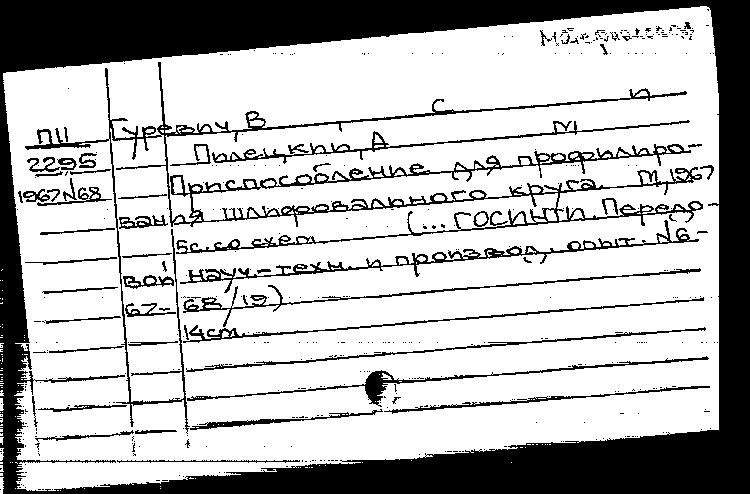 П11
2295
1967 №68
Гуревич, В С и
Пилецкий, А М
Приспособление для профилиро-
вания шлифовального круга. М, 1967
5с. со схем. (... ГОСИНТИ. Передо-
вой науч.-техн. и производ. опыт. №6-
67-68/19)
14см.